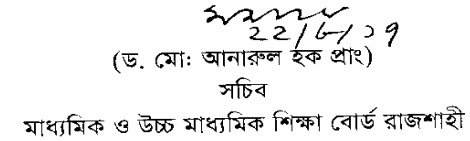 (ড. মো: আনারুল হক প্রাং)
সচিব
মাধ্যমিক ও উচ্চ মাধ্যমিক শিক্ষা বোর্ড রাজশাহী